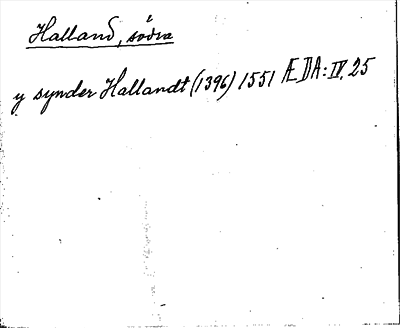 Halland, södra
y synder Hallandt (1396) 1551 ÆDA: IV, 25